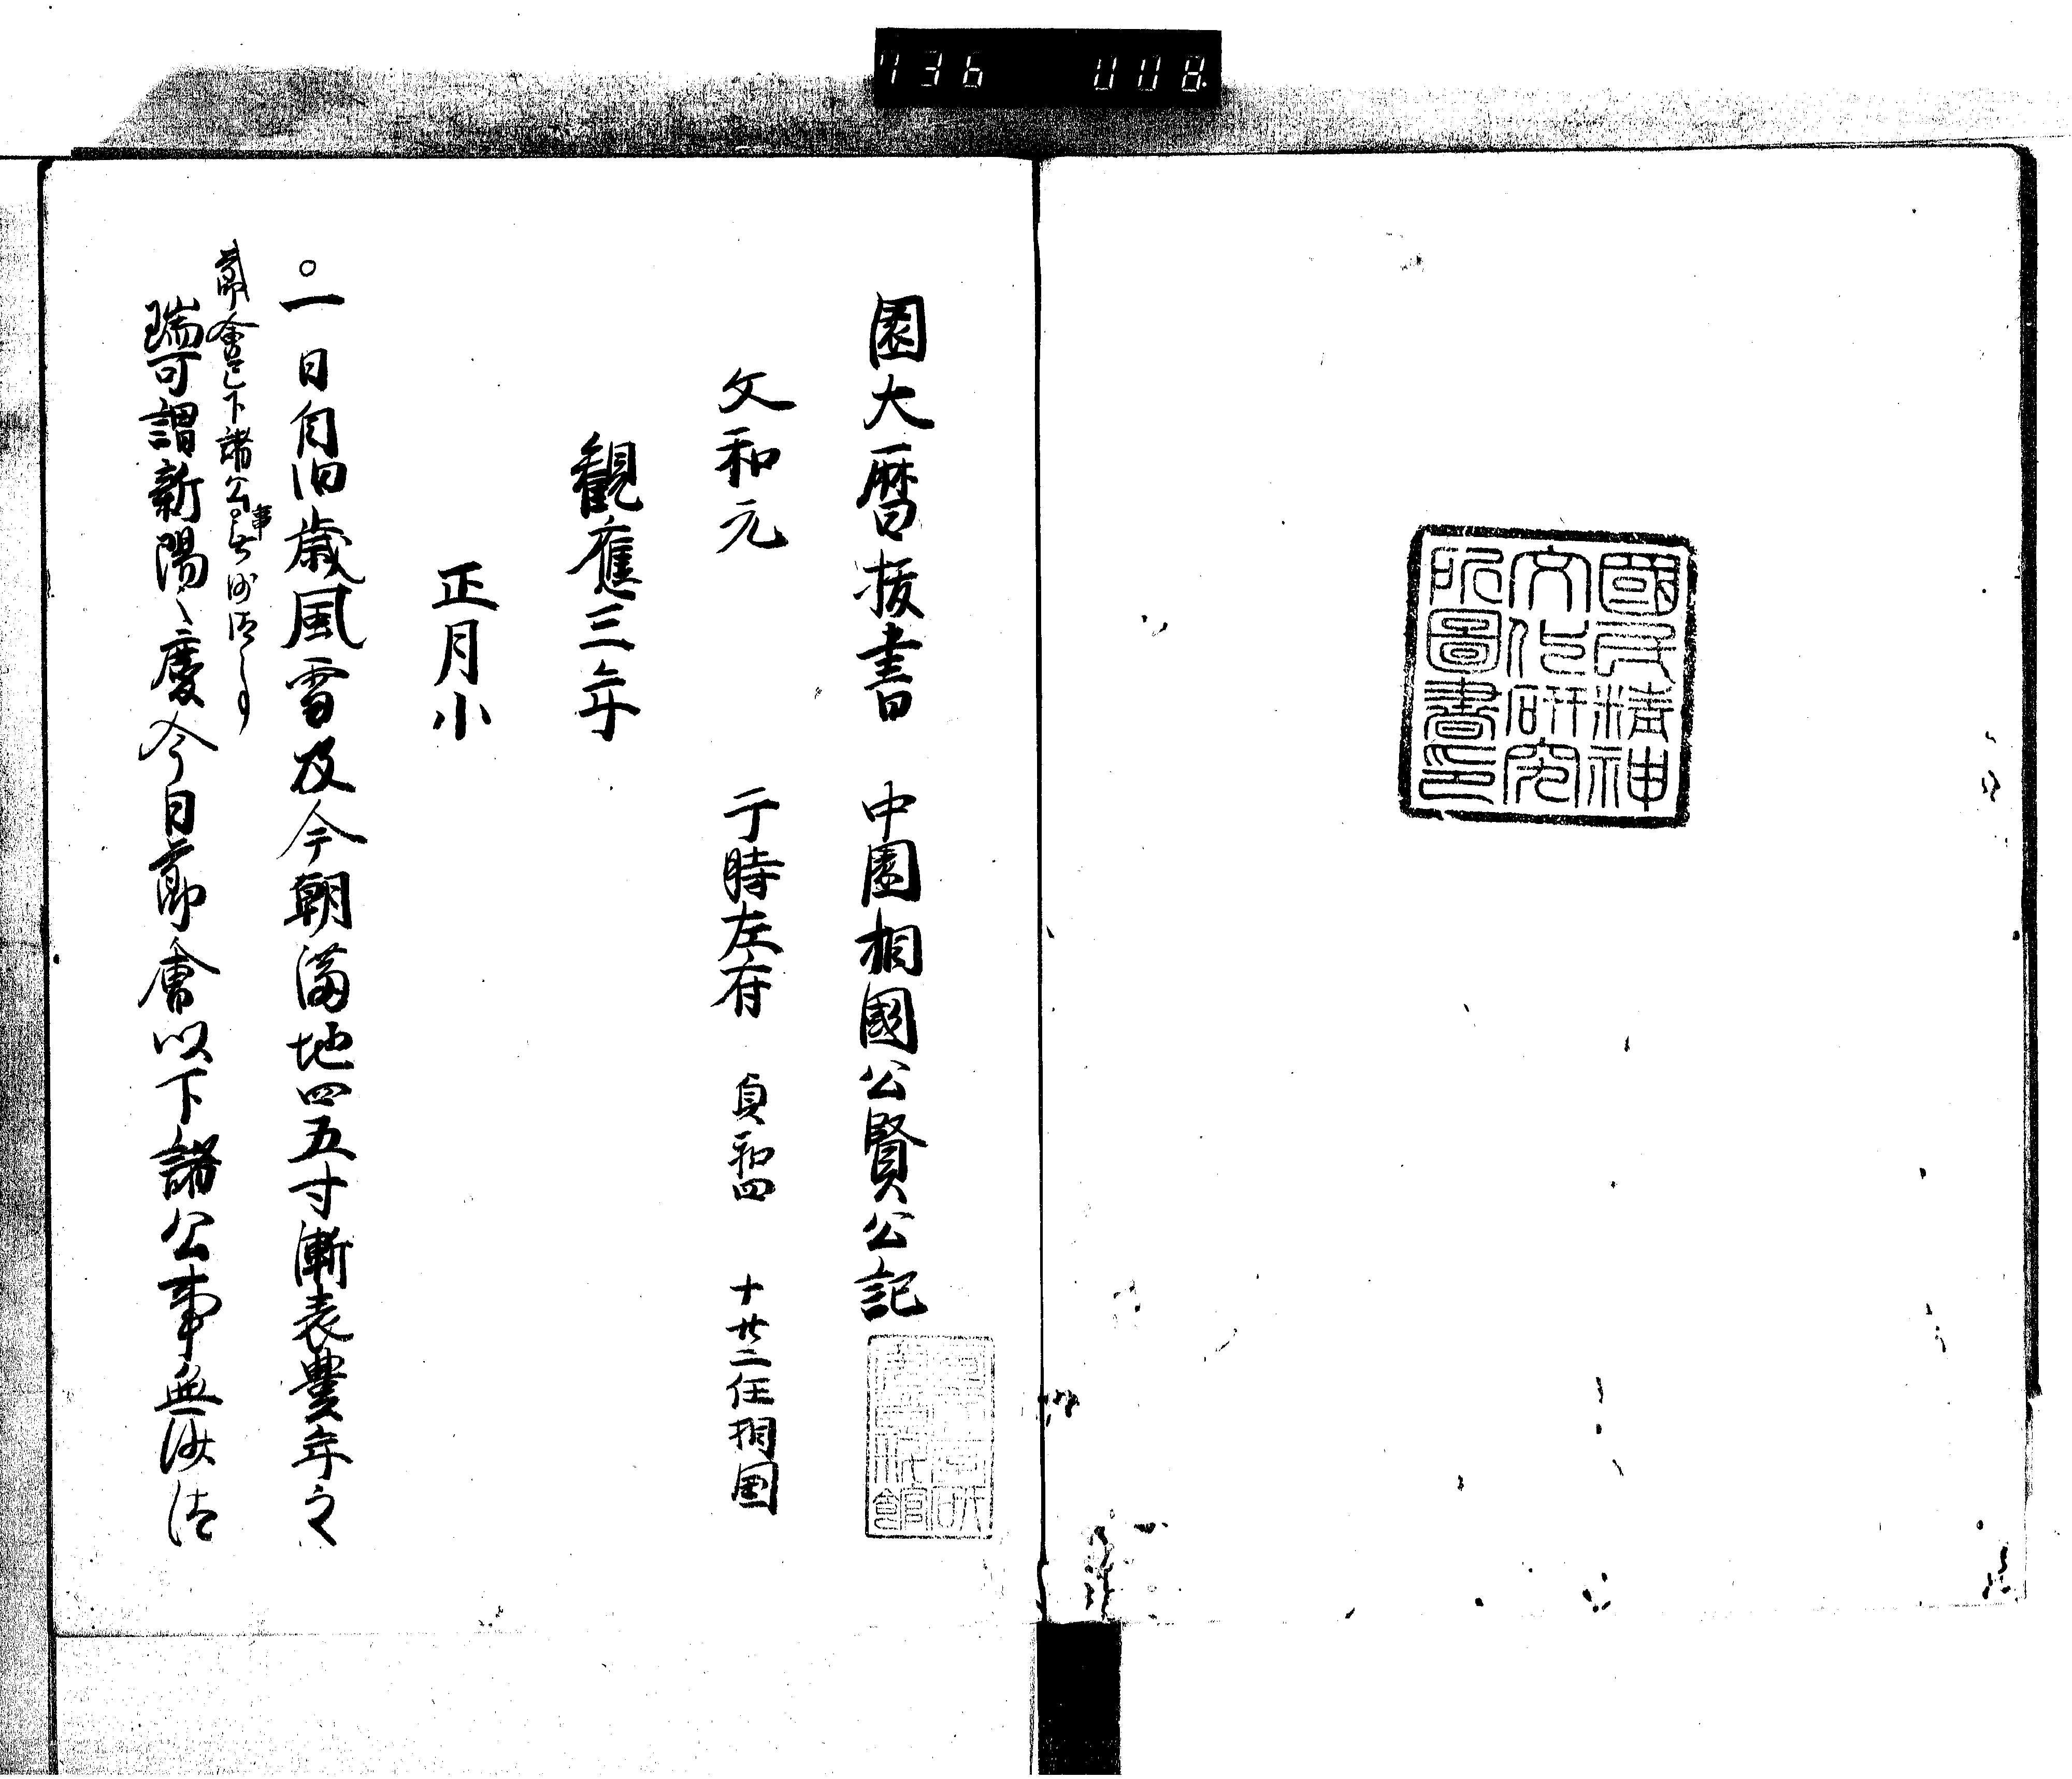 736 008
國民精神
文化研究
所圖書印
園大暦抜書 中園相國公賢公記
文和元 于時左府 貞和四 十廿二任相国
觀應三年
正月小
○一日自旧歳風雪及今朝満地四五寸漸表豊年之
節會已下諸公事無沙汰事
瑞可謂新陽之慶今日節會以下諸公事無沙汰